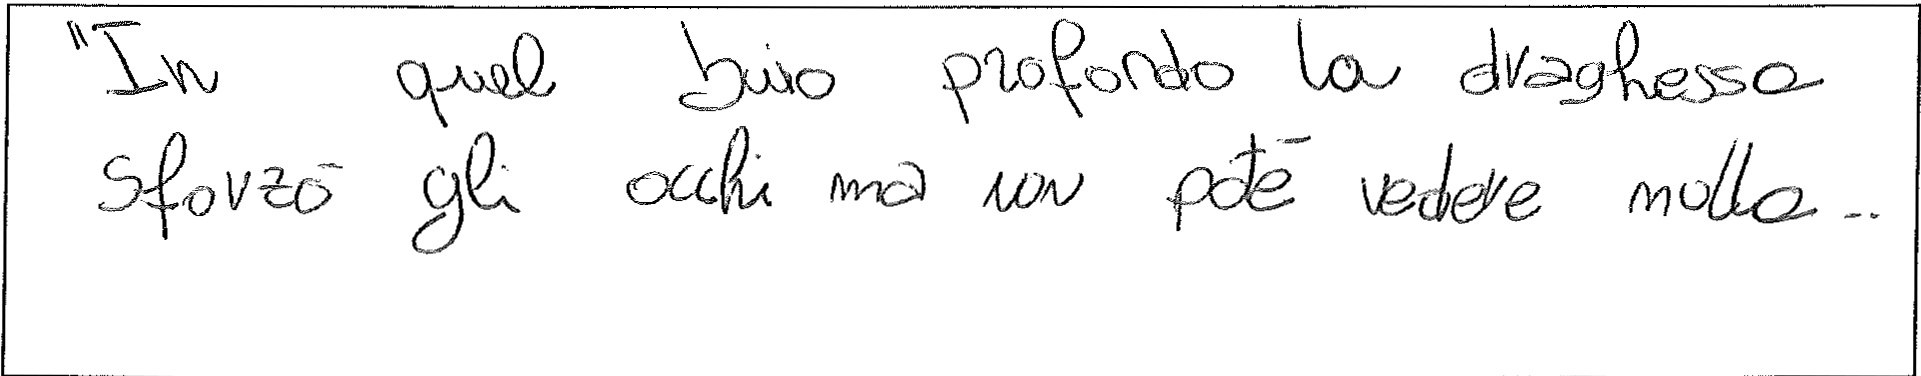 "In quel buio profondo la draghessa
sforzò gli occhi ma non poté vedere nulla...